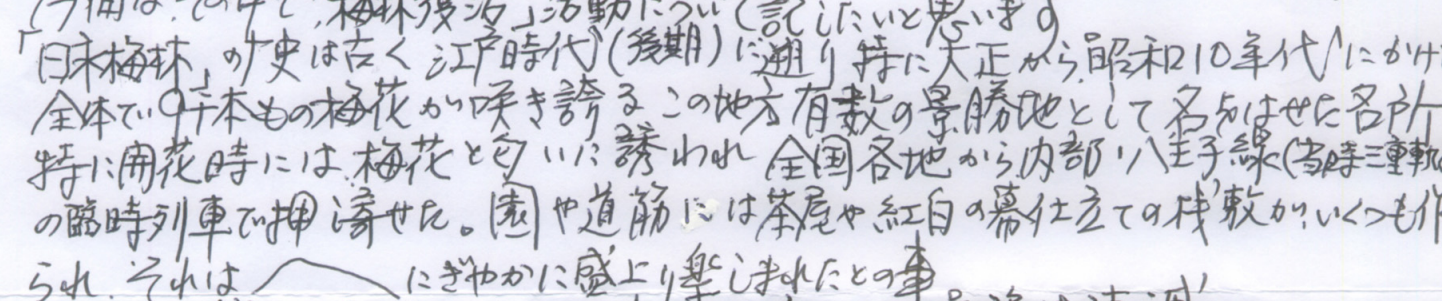 今回は、その中で「梅林復活」活動について話したいと思います
「日永梅林」の广史は古く江戸時代(後期)に遡り特に大正から昭和10年代にかけ
全体で9千本もの梅花が咲き誇るこの地方有数の景勝地として名をはせた名所
特に開花時には、梅花と匂いに誘われ全国各地から内部・八王子線(当時三重軌
の臨時列車で押し寄せた。園や道筋には茶屋や紅白の幕仕立ての桟敷がいくつも作
られ、それは にぎやかに盛上り楽しまれたとの事